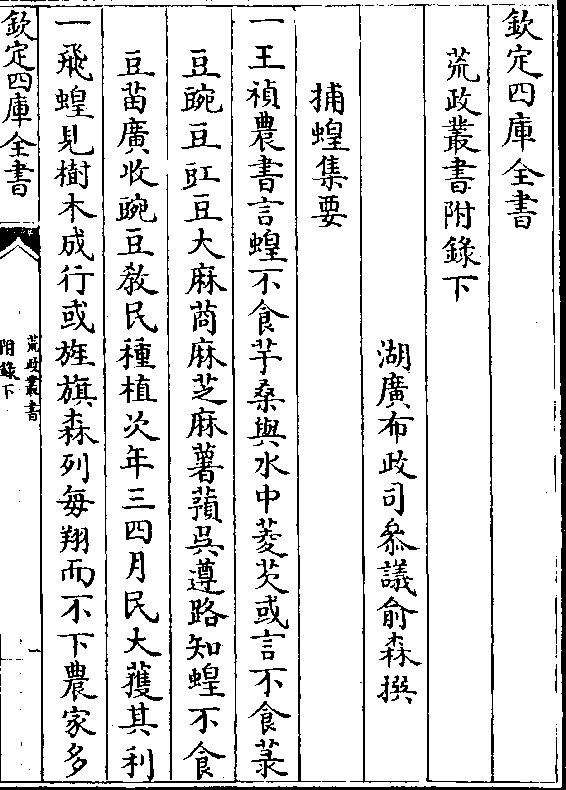 欽定四庫全書
荒政叢書附錄下
湖廣布政司叅議俞森撰
捕蝗集要
一王禎農書言蝗不食芋桑與水中菱芡或言不食菉
豆豌豆豇豆大麻䔛麻芝麻薯蕷吳遵路知蝗不食
豆苗廣收豌豆教民種植次年三四月民大獲其利
一飛蝗見樹木成行或旌旗森列每翔而不下農家多
欽定四庫全書
荒政叢書
附錄下
一